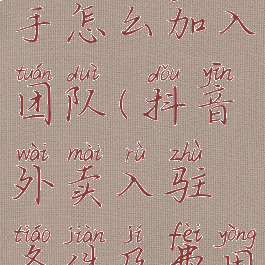 手怎么加入
tuán duì dǒu yīn
团队(抖音
wài mài rù zhù
外卖入驻
tiáo jiàn jí fèi yòng
条件及费用